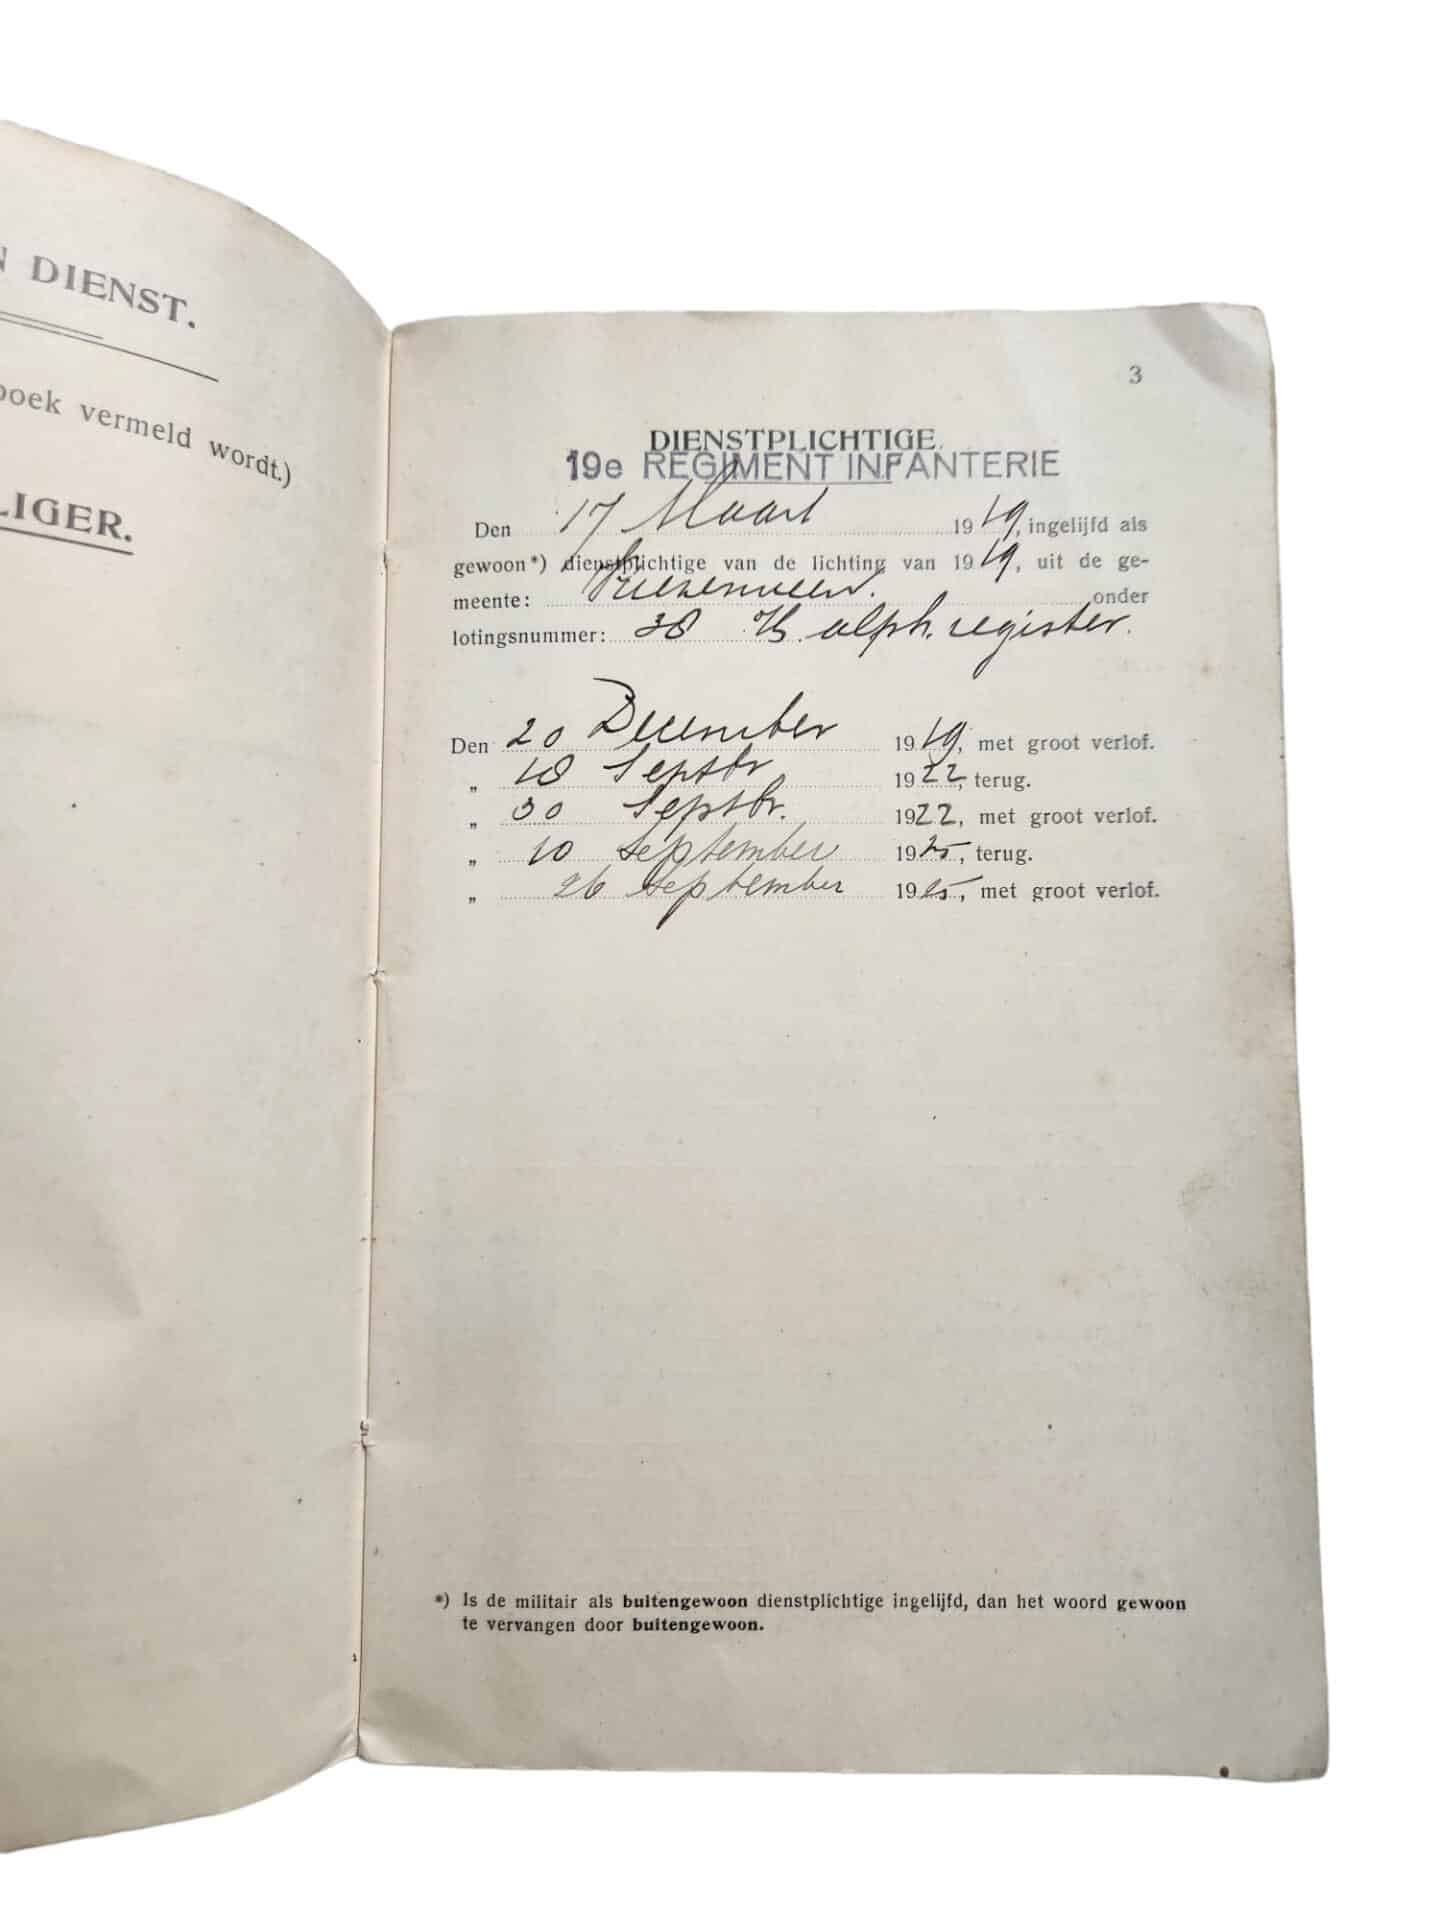 N DIENST.
oek vermeld wordt.)
LIGER.
3
DIENSTPLICHTIGE.
19e REGIMENT INFANTERIE
Den 17 Maart 1919, ingelijfd als
gewoon*) dienstplichtige van de lichting van 1919, uit de ge-
meente: Vriezenveen. onder
lotingsnummer: 38 alph. register.
Den 20 December 1919, met groot verlof.
„ 18 Septbr 1922, terug.
„ 30 Septbr. 1922, met groot verlof.
„ 10 september 1925, terug.
„ 26 september 1925, met groot verlof.
*) Is de militair als buitengewoon dienstplichtige ingelijfd, dan het woord gewoon
te vervangen door buitengewoon.